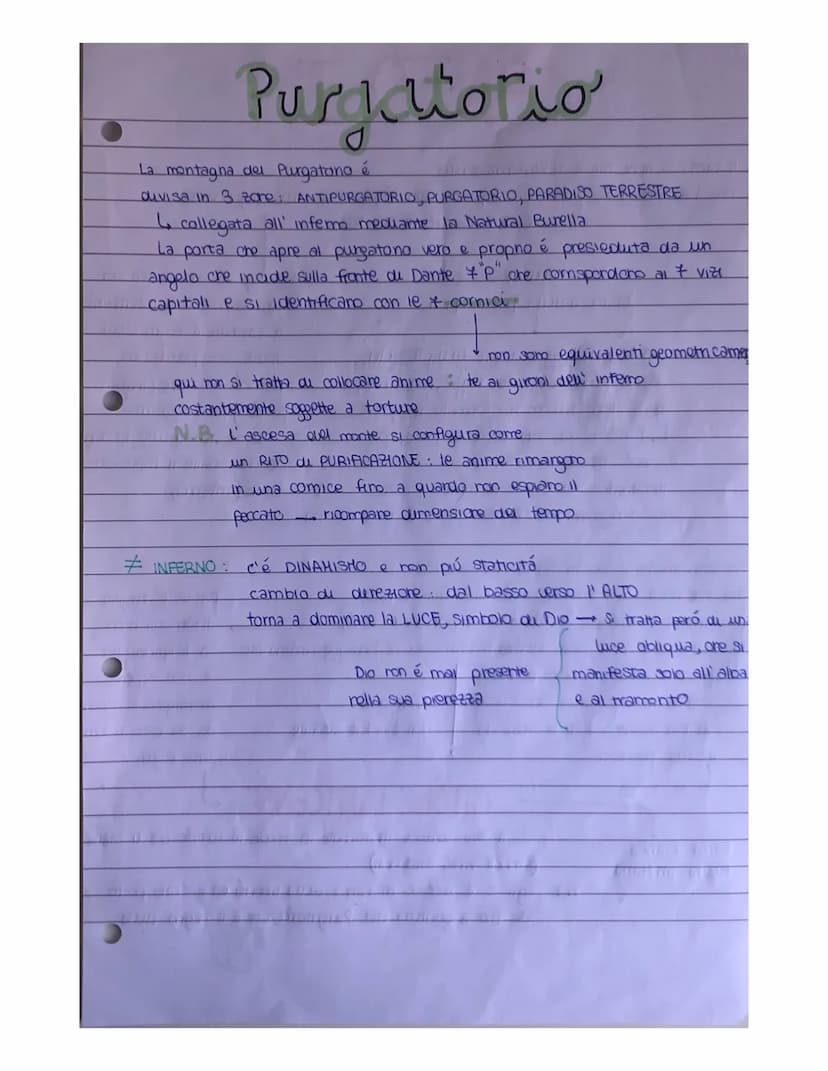 Purgatorio
La montagna del Purgatorio é
divisa in 3 zone: ANTIPURGATORIO, PURGATORIO, PARADISO TERRESTRE
↳ collegata all' inferno mediante la Natural Burella
La porta che apre al purgatorio vero e proprio é presieduta da un
angelo che incide sulla fronte di Dante 7 "P" che corrispondono ai 7 vizi
capitali e si identificano con le 7 cornici
↓ non sono equivalenti geometricamen
te ai gironi dell' inferno
qui non si tratta di collocare anime :
costantemente soggette a torture
N.B. L'ascesa del monte si configura come
un RITO di PURIFICAZIONE : le anime rimangono
in una cornice fino a quando non espiano il
peccato → ricompare dimensione del tempo
≠ INFERNO : c'é DINAMISMO e non piú staticitá
cambio di direzione : dal basso verso l' ALTO
torna a dominare la LUCE, simbolo di Dio → si tratta peró di un
luce obliqua, che si
manifesta solo all'alba
e al tramonto
Dio non é mai presente
nella sua pienezza